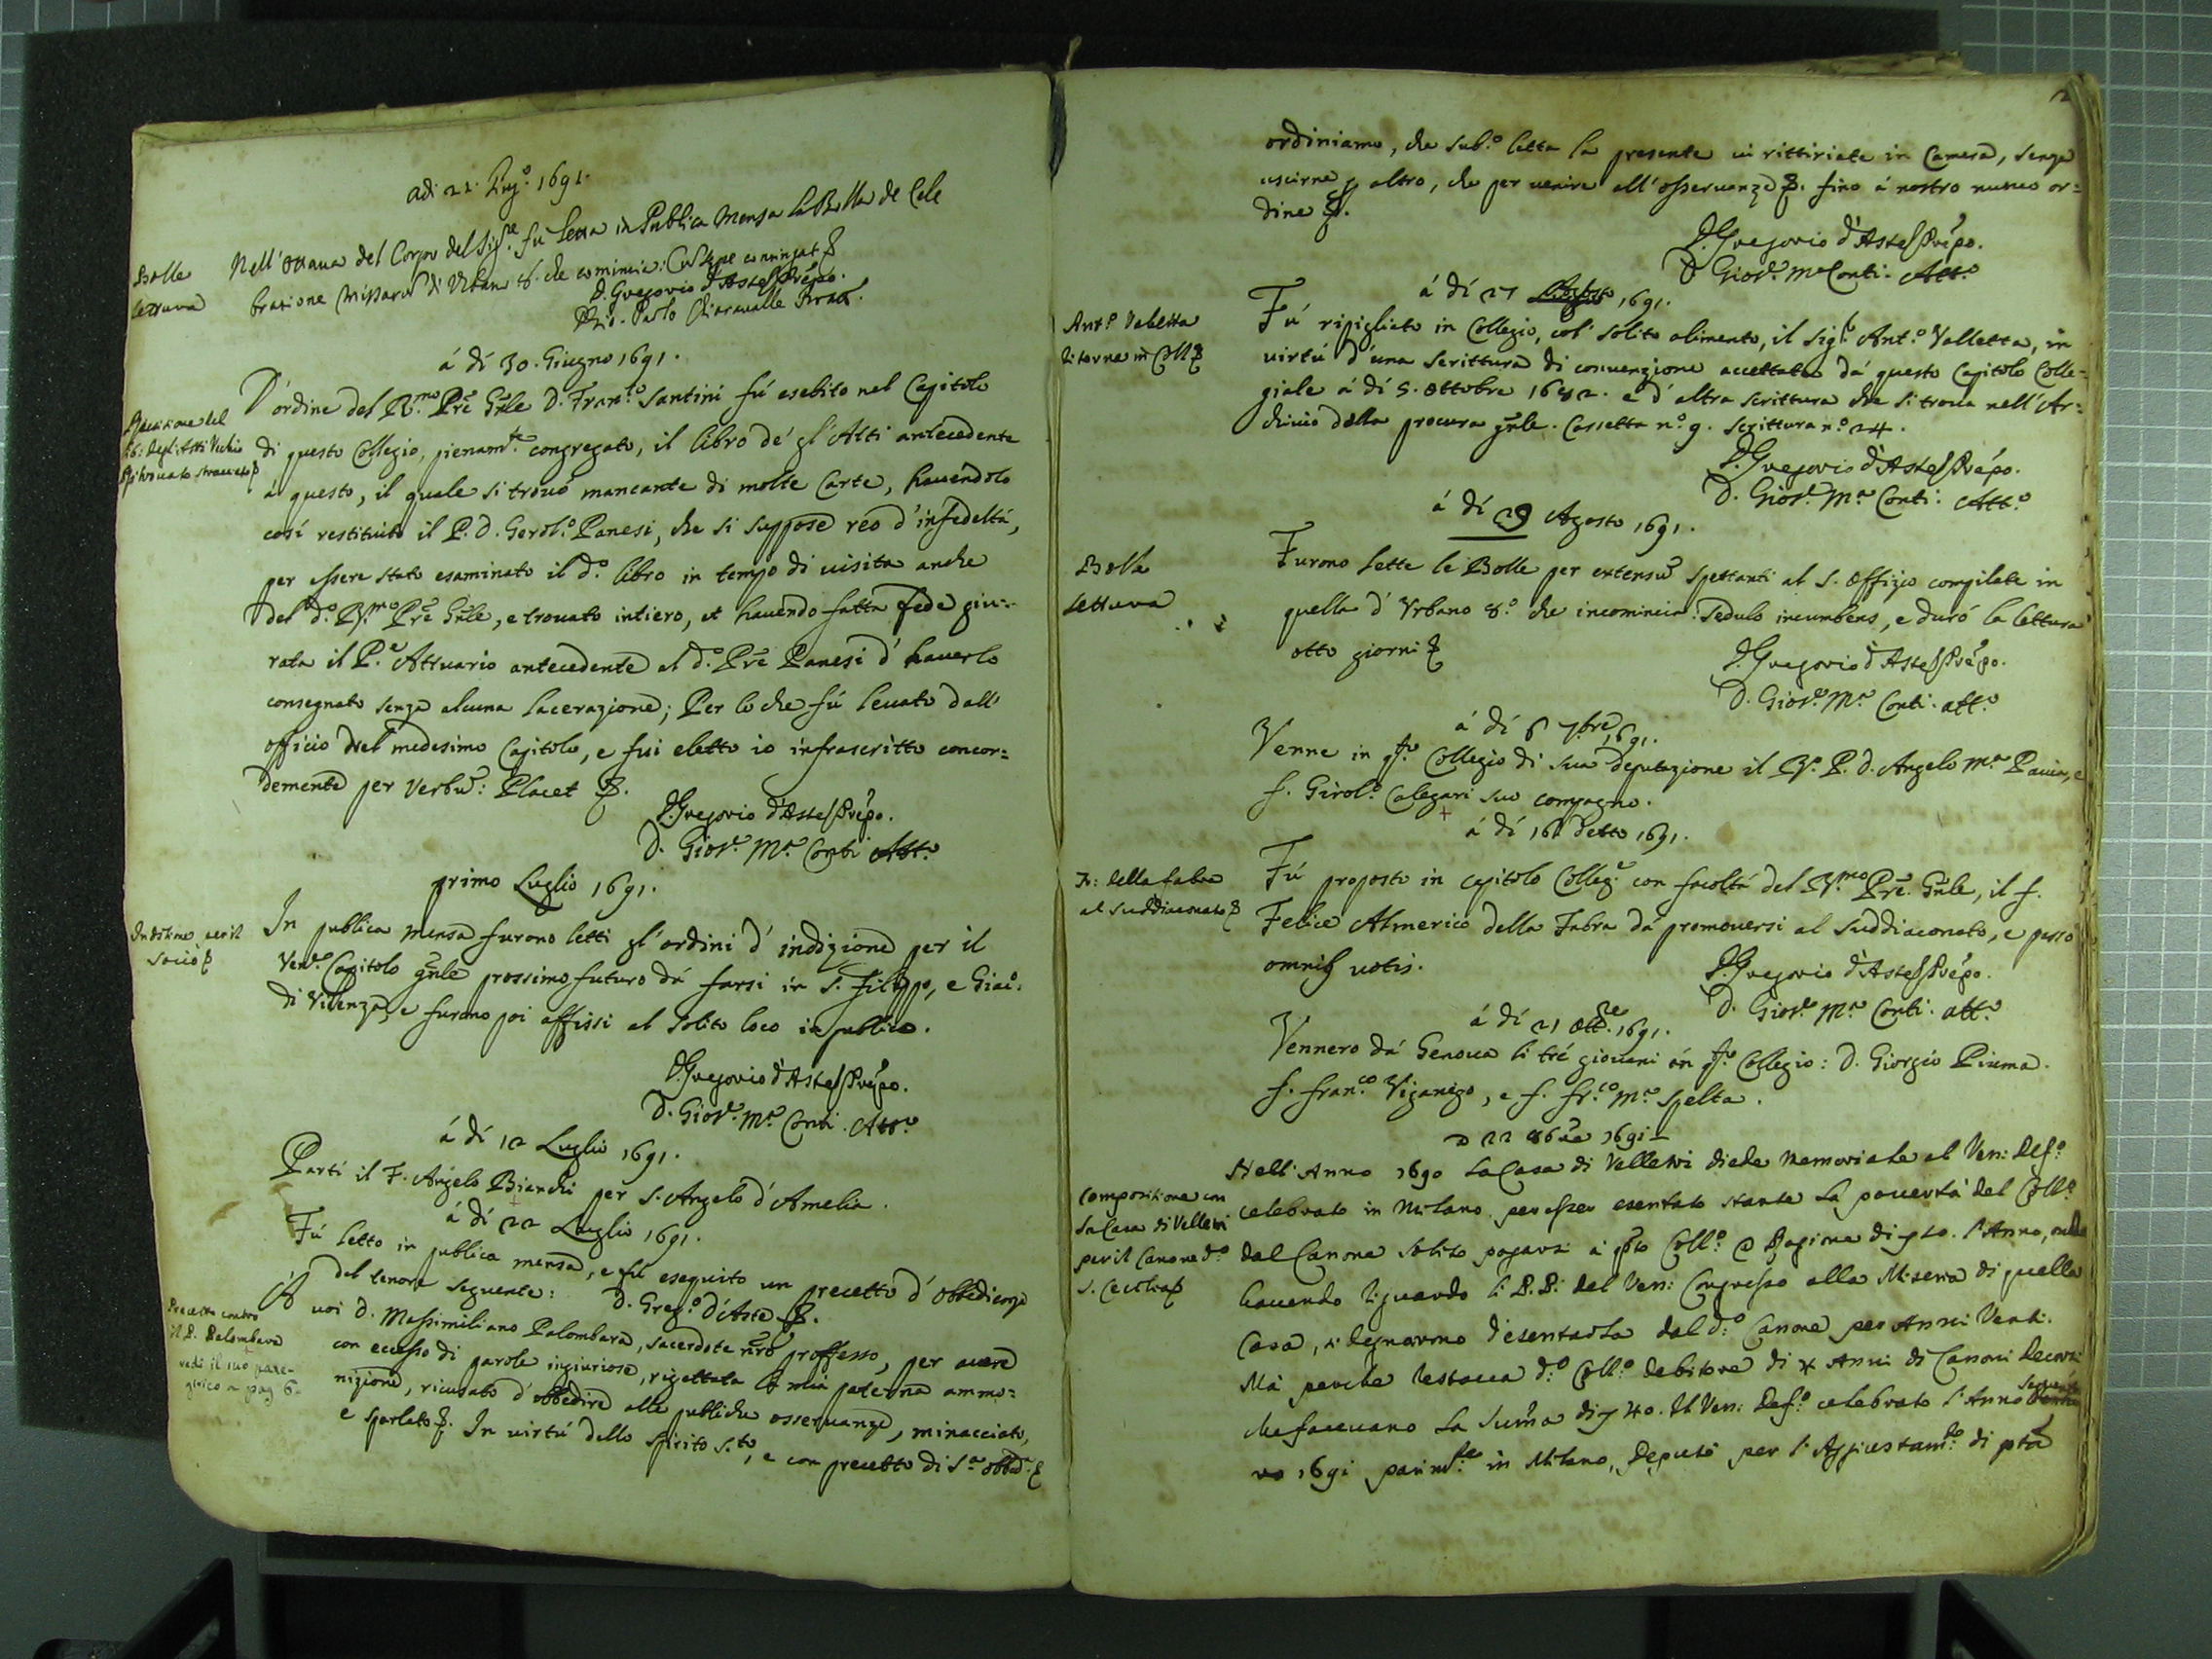 adi 22. Giug.º 1691.
Bolle
lettura
Nell'ottava del Corpo del Sig.re fù letta in Publica Mensa la Bolla de Cele
bratione Missarũ di Urbano 8. che comincia: Cum sæpe contingat
D. Gregorio d'Aste Prepo.
Paolo Chiaravalle
á dí 30. Giugno 1691.
lib: degl'Atti Vechio
Ritrovato stracciato
D'ordine del R.mo Prẽ Gñle D. Fran.co Santini fú esebito nel Capitolo
di questo Collegio, pienam.te congregato, il libro de' gl'Atti antecedente
á questo, il quale si trovó mancante di molte Carte, havendolo
cosí restituito il P. D. Gerol.º Panesi, che si suppose reo d'infedeltá,
per essere stato esaminato il d.º libro in tempo di visita anche
del d.º R.mo Prẽ Gñle, e trovato intiero, et havendo fatta fede giu=
rata il P.e Attuario antecedente al d.º Prẽ Panesi d'haverlo
consegnato senza alcuna lacerazione; Per lo che fú levato dall'
officio del medesimo Capitolo, e fui eletto io infrascritto concor=
demente per verbũ: Placet
D. Gregorio d'Aste Prepo.
D. Giov.e M.a Conti Att.º
primo Luglio 1691.
per il
Socio
In publica mensa furono letti gl'ordini d'indizione per il
Ven.e Capitolo gñle prossimo futuro dá farsi in S. Filippo, e Giac.º
di Vicenza, e furono poi affissi al solito loco in publico.
D. Gregorio d'Aste Prepo.
D. Giov.e M.a Conti. Att.º
á dí 12 Luglio 1691.
Partí il F. Angelo Bianchi per S. Angelo d'Amelia.
á dí 22 Luglio 1691.
Fú letto in publica mensa, e fú eseguito un precetto d'obbedienza
del tenore seguente: D. Greg.º d'Aste
Precetto contro
il P. Palombara
vedi il suo pane-
girico a pag 6.
A voi D. Massimiliano Palombara, sacerdote nr̃o professo, per avere
con eccesso di parole ingiuriose, rigettata la mia paterna ammo=
nizione, ricusato d'obbedire alle publiche osservanze, minacciato,
e sparlato. In virtú dello Spirito S.to, e con precetto di S.a obbed.a
ordiniamo, che sub.º letta la presente vi rittiriate in Camera, senza
uscirne altro, che per venire all'osservanze fino á nostro nuovo or=
dine
D. Gregorio d'Aste Prepo.
D. Giov.e M.a Conti. Att.º
á dí 27 Agosto 1691.
Ant.º Valletta
ritorna in Coll.
Fú ripigliato in Collegio, col' solito alimento, il Sig.r Ant.º Valletta, in
virtú d'una scrittura di convenzione accettata dá questo Capitolo Colle=
giale á dí 5. Ottobre 1682. e d'altra scrittura che si trova nell'Ar=
chivio della procura gñle. Cassetta n.º 9. scrittura n.º 24.
D. Gregorio d'Aste Prepo.
D. Giov.e M.a Conti. Att.º
á dí 29 Agosto 1691.
Bolla
lettura
Furono lette le Bolle per extensũ spettanti al S. Offizio compilate in
quella d'Urbano 8.º che incomincia: Sedulo incumbens, e duró la lettura
otto giorni
D. Gregorio d'Aste Prepo.
D. Giov.e M.a Conti. att.º
á dí 6 7bre 1691.
Venne in q.to Collegio di sua deputazione il R. P. D. Angelo M.a Pavia, e
f. Girol.º Calegari suo compagno.
á dí 16 detto 1691.
F: della fabra
al suddiaconato
Fú proposto in capitolo Colleg.e con facoltá del R.mo Prẽ Gñle, il f.
Felice Almerico della Fabra dá promoversi al suddiaconato, e passó
omnibus votis.
D. Gregorio d'Aste Prepo.
D. Giov.e M.a Conti. att.º
á dí 21 Ott.re 1691.
Vennero dá Genova li tré giovani in q.to Collegio: D. Giorgio Piuma.
f. Fran.co Viganego, e f. Fr.co M.a Spelta.
a 22 8bre 1691
Compositione con
la Casa di Velletri
per il Canone d.º
S. Cecilia
Nell'Anno 1690 la Casa di Velletri diede Memoriale al Ven: Def.º
celebrato in Milano per esser esentato stante la povertà del Coll.º
dal Canone solito pagarsi à q̃to Coll.º a Ragione di l'Anno, onde
havendo riguardo li P.P. del Ven: Congresso alla Miseria di quella
Casa, si degnarono d'esentarla dal d.º Canone per Anni Venti.
Mà perche restava d.º Coll.º debitore di 4 Anni di Canoni decorsi
che facevano la sum̃a di 40. Il Ven: Def.º celebrato l'Anno
1691 parim.te in Milano, Deputò per l'Aggiustam.to di p̃ta